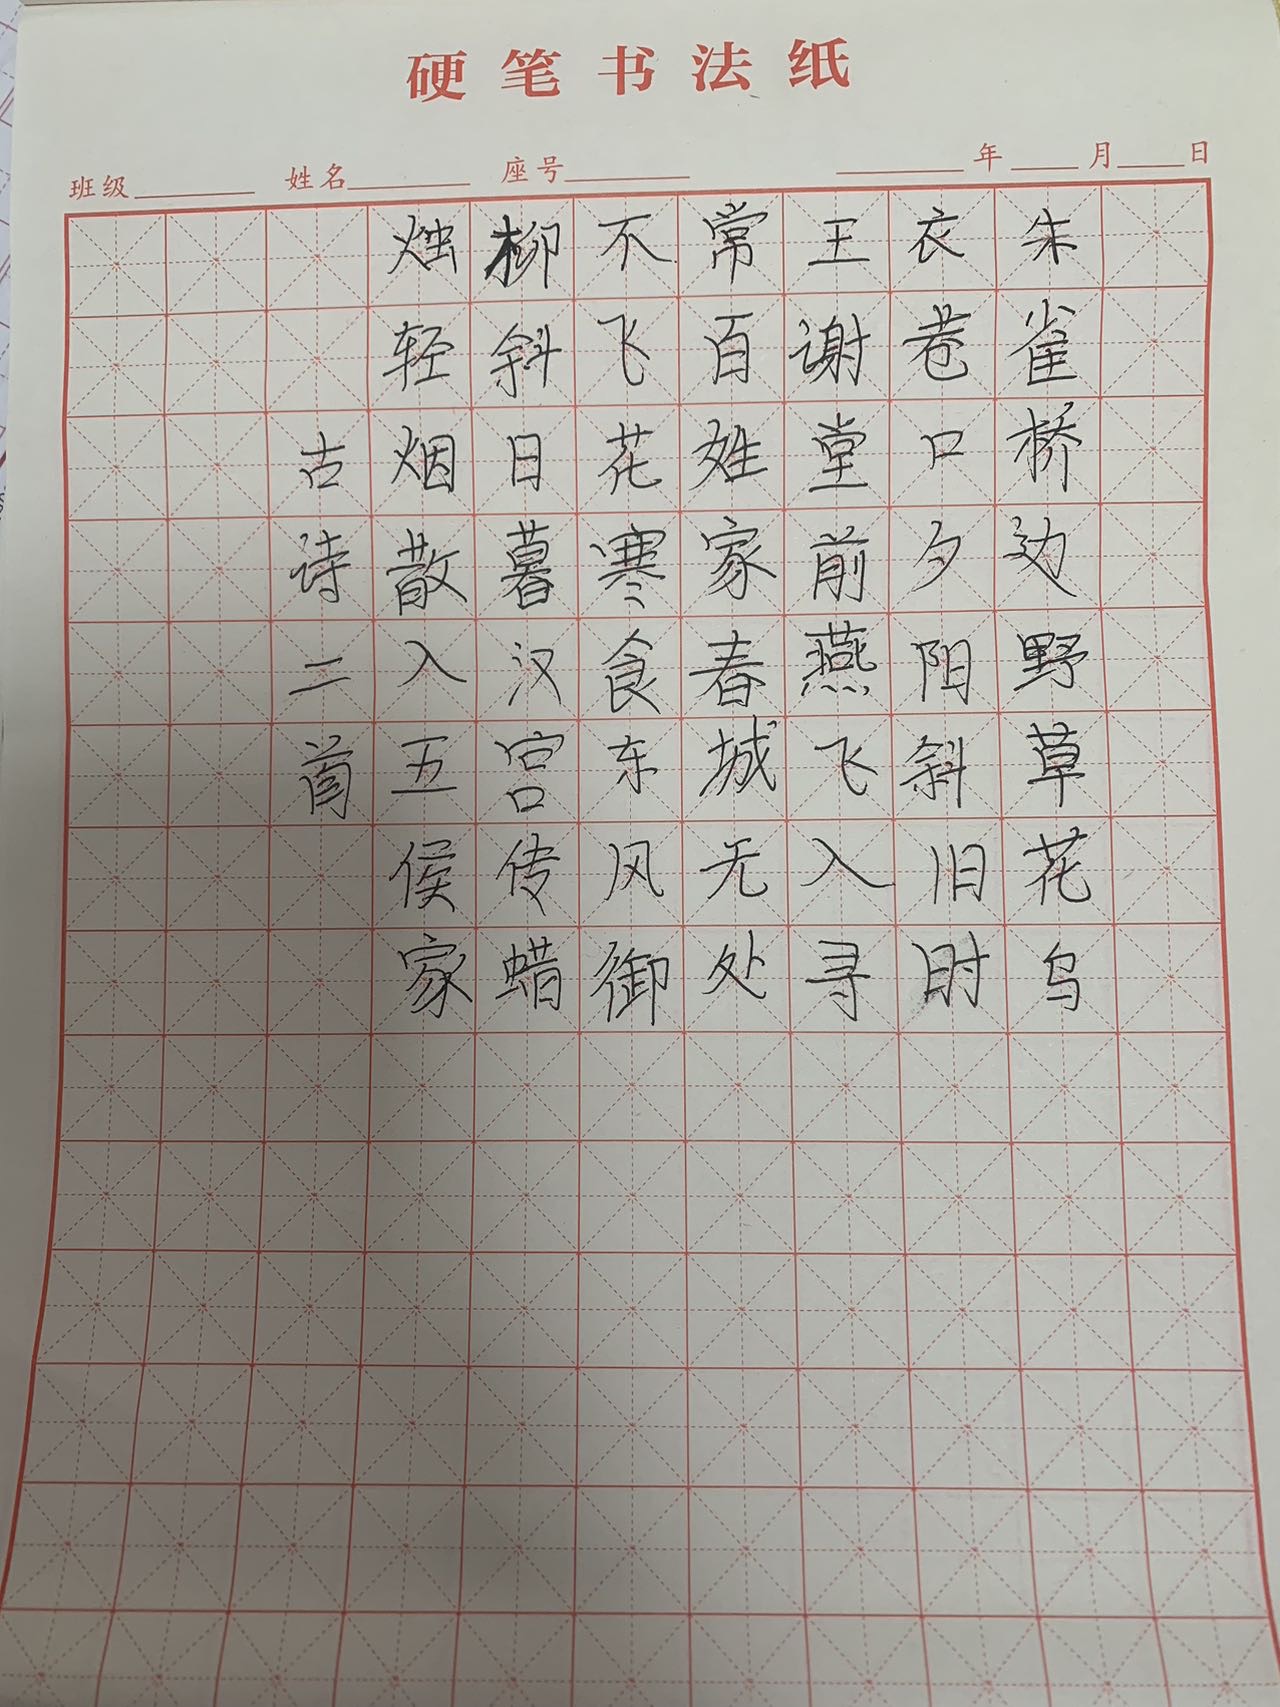 硬笔书法纸
班级 姓名 座号 年 月 日
朱雀桥边野草花乌
衣巷口夕阳斜旧时
王谢堂前燕飞入寻
常百姓家春城无处
不飞花寒食东风御
柳斜日暮汉宫传蜡
烛轻烟散入五侯家
古诗二首